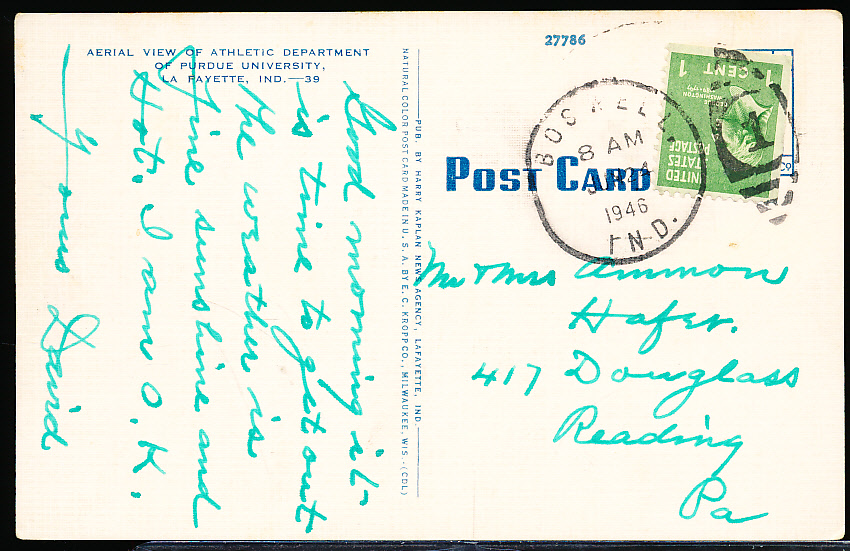 AERIAL VIEW OF ATHLETIC DEPARTMENT
OF PURDUE UNIVERSITY,
LA FAYETTE, IND.—39
Good morning it
is time to get out
the weather is
Fine sunshine and
Hot. I am O.K.
— Yours David
NATURAL COLOR POST CARD MADE IN U. S. A. BY E. C. KROPP CO., MILWAUKEE, WIS. (CDL)
PUB. BY HARRY KAPLAN NEWS AGENCY, LAFAYETTE, IND.
27786
POST CARD
BOSWELL
8 AM
24
1946
IND.
UNITED
STATES
POSTAGE
1 CENT 1
WASHINGTON
Mr & Mrs Ammon
Hafer.
417 Douglass
Reading
Pa